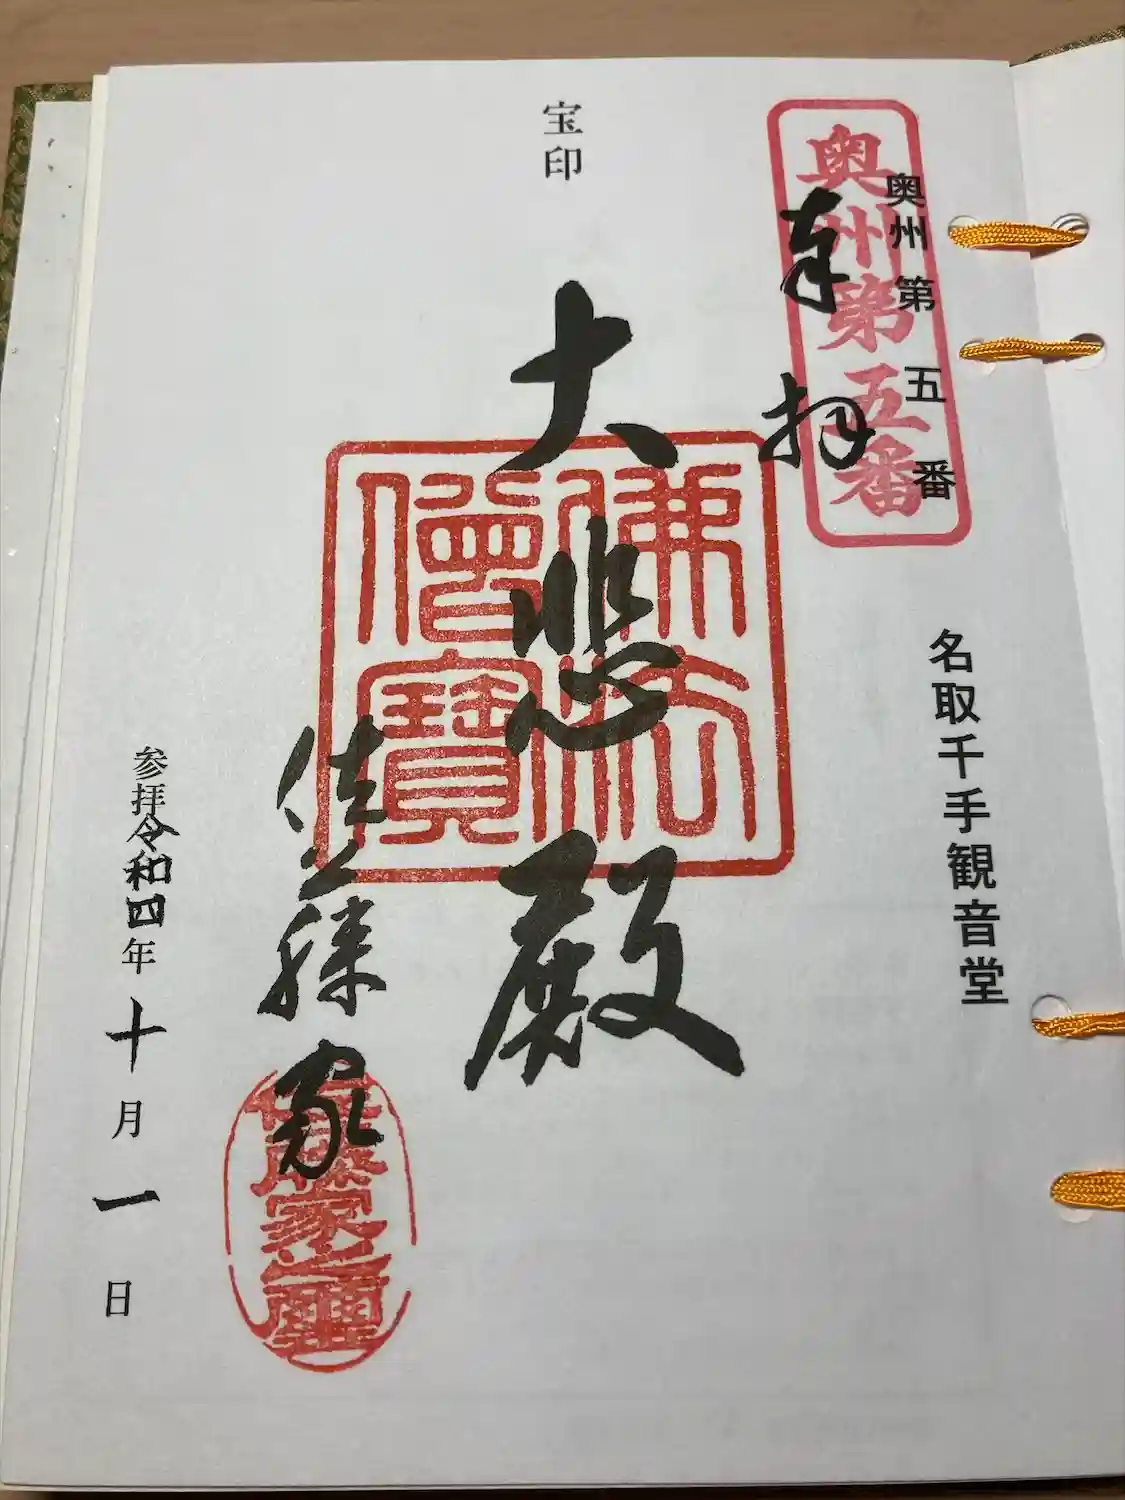 奥州第五番
奥州第五番
名取千手観音堂
奉拝
宝印
大悲殿
佛法僧寶
佐藤家
佐藤家之璽
参拝令和四年十月一日